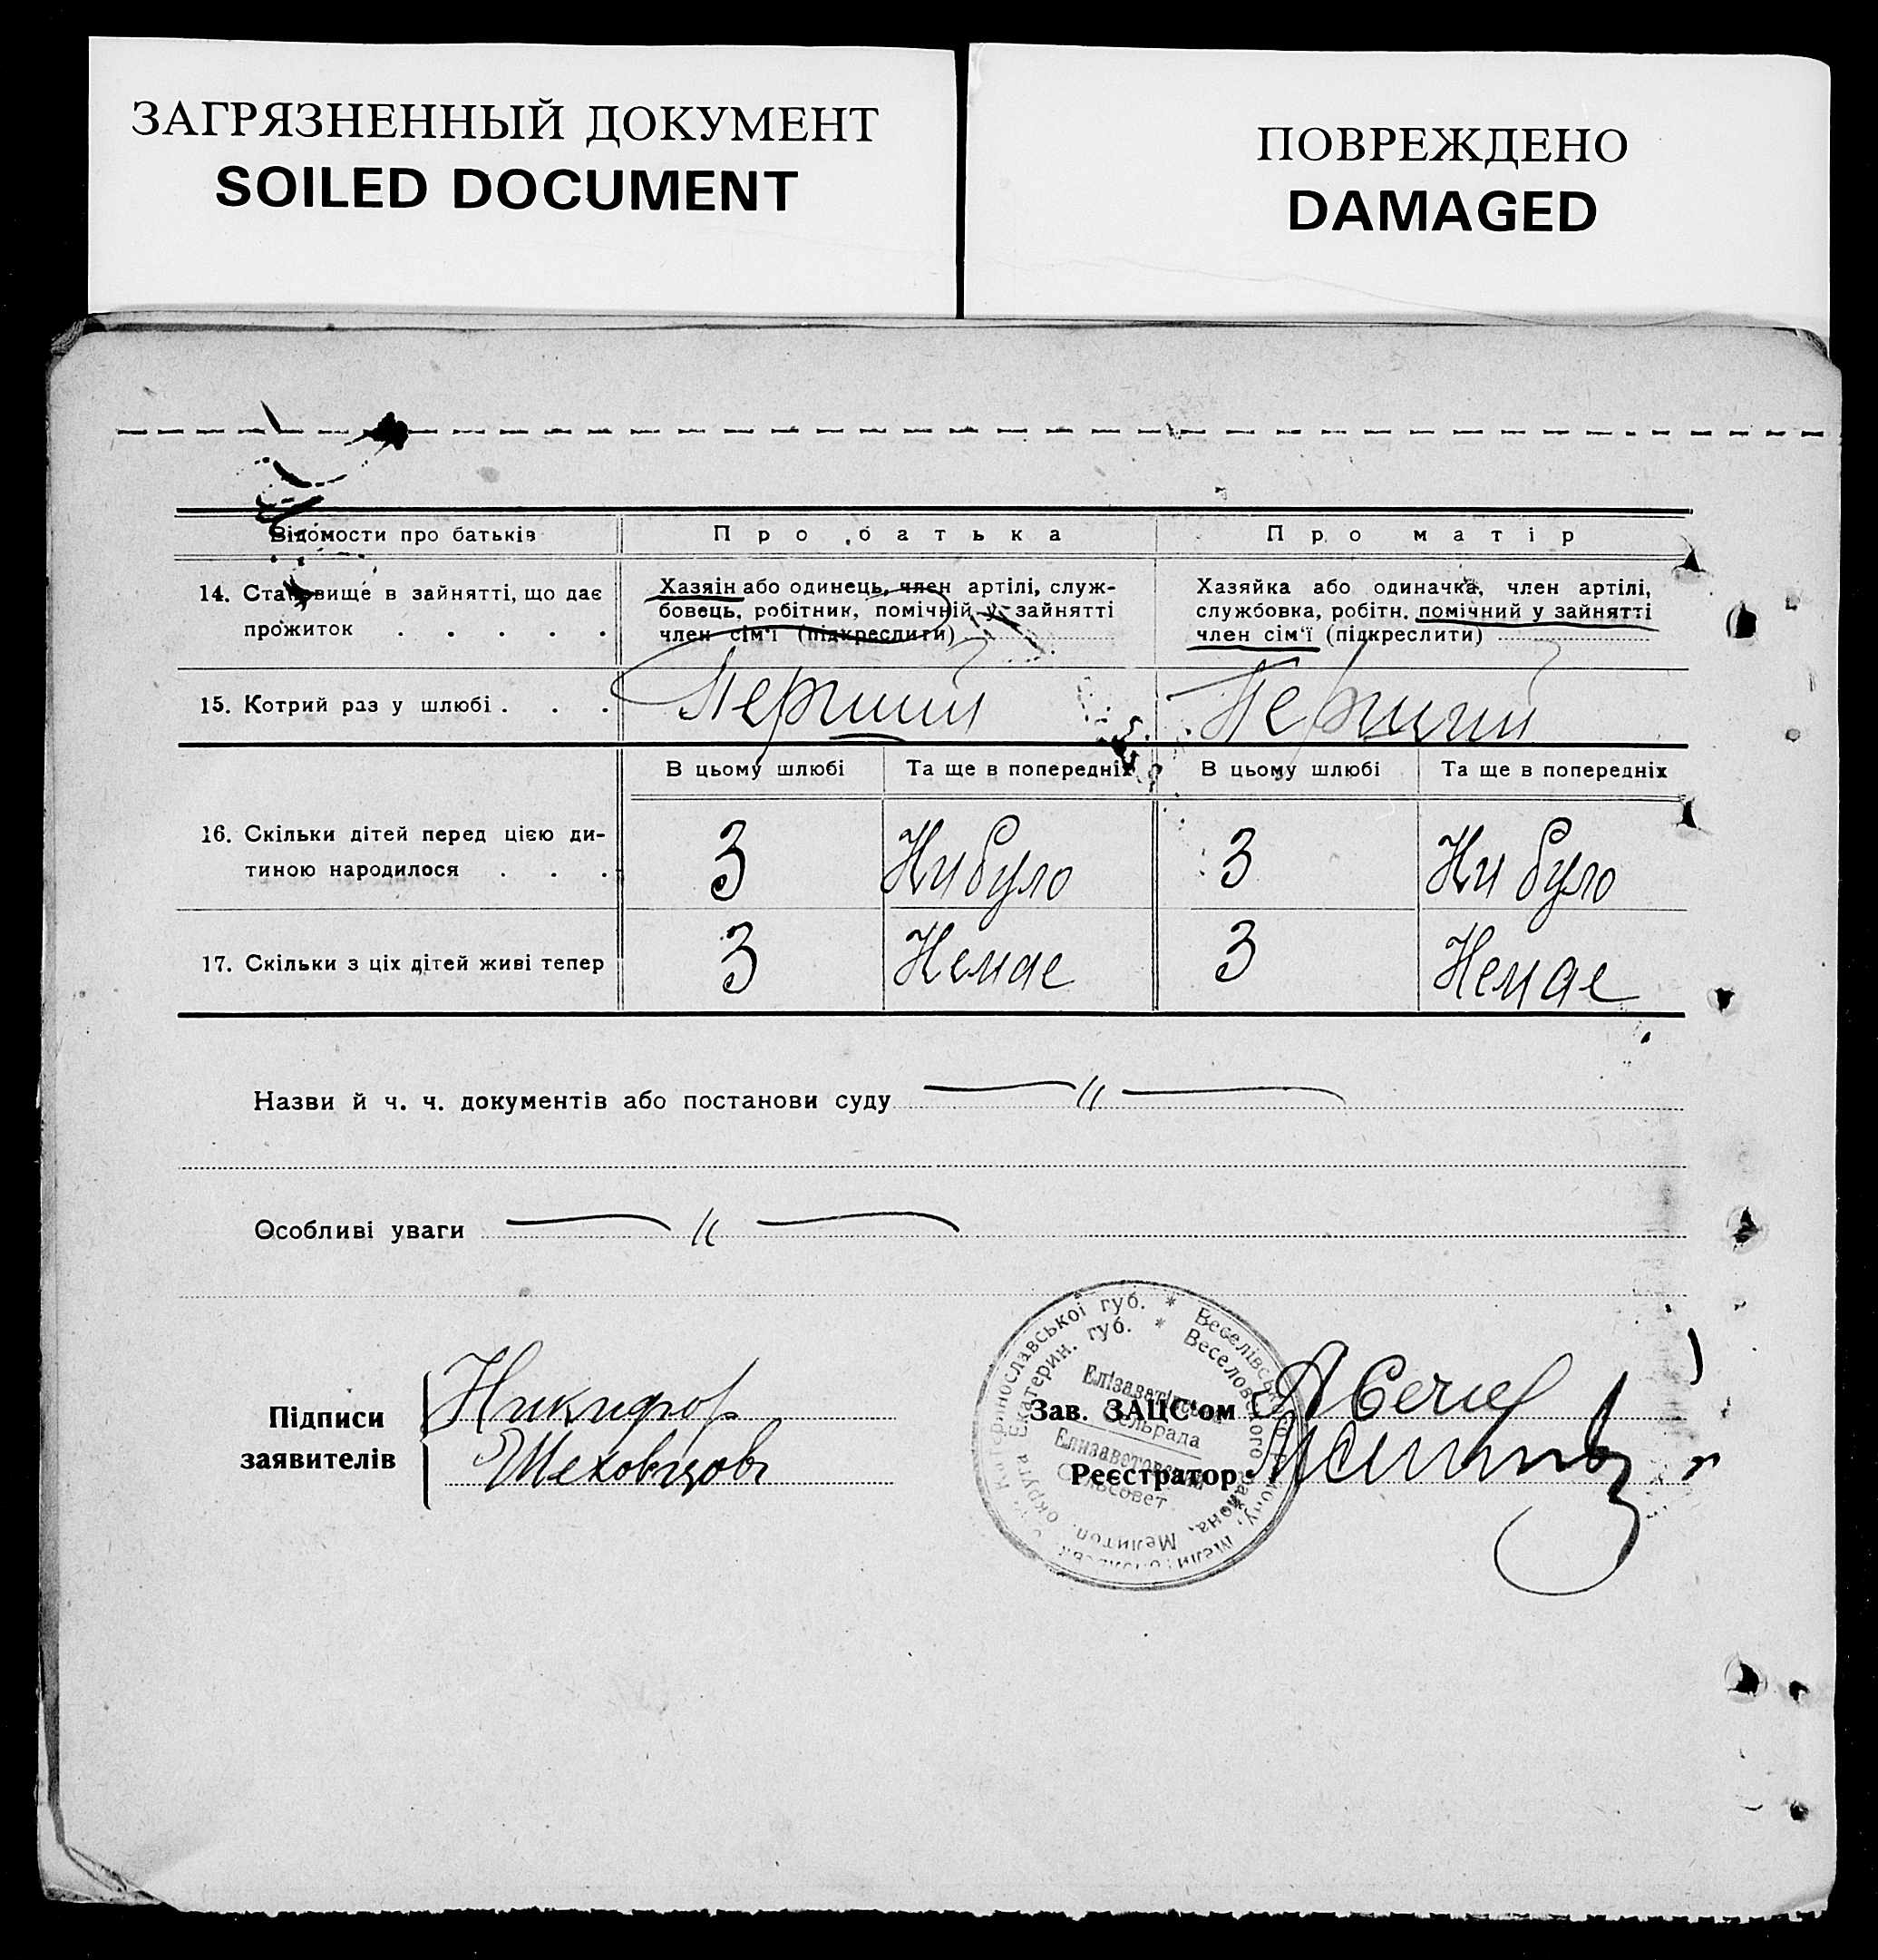 ЗАГРЯЗНЕННЫЙ ДОКУМЕНТ
SOILED DOCUMENT
ПОВРЕЖДЕНО
DAMAGED
Відомости про батьків
Про батька
Про матір
14. Становище в зайнятті, що дає
прожиток . . . . .
Хазяін або одинець, член артілі, служ-
бовець, робітник, помічній у зайнятті
член сім'ї (підкреслити)
Хазяйка або одиначка, член артілі,
службовка, робітн. помічний у зайнятті
член сім'ї (підкреслити)
15. Котрий раз у шлюбі . . .
Перший
Перший
В цьому шлюбі
Та ще в попередніх
В цьому шлюбі
Та ще в попередніх
16. Скільки дітей перед цією ди-
тиною народилося . . .
3
Ни було
3
Ни було
17. Скільки з ціх дітей живі тепер
3
Немае
3
Немае
Назви й ч. ч. документів або постанови суду — " —
Особливі уваги — " —
Підписи
заявителів
Никифор
Шеховцов
Зав. ЗАЦС'ом
Реєстратор
Катеринославської губ. * Веселівського району,
округа Екатерин. губ. * Веселовского района, Мелитоп.
Сельрада
Елизаветовский
Сельсовет